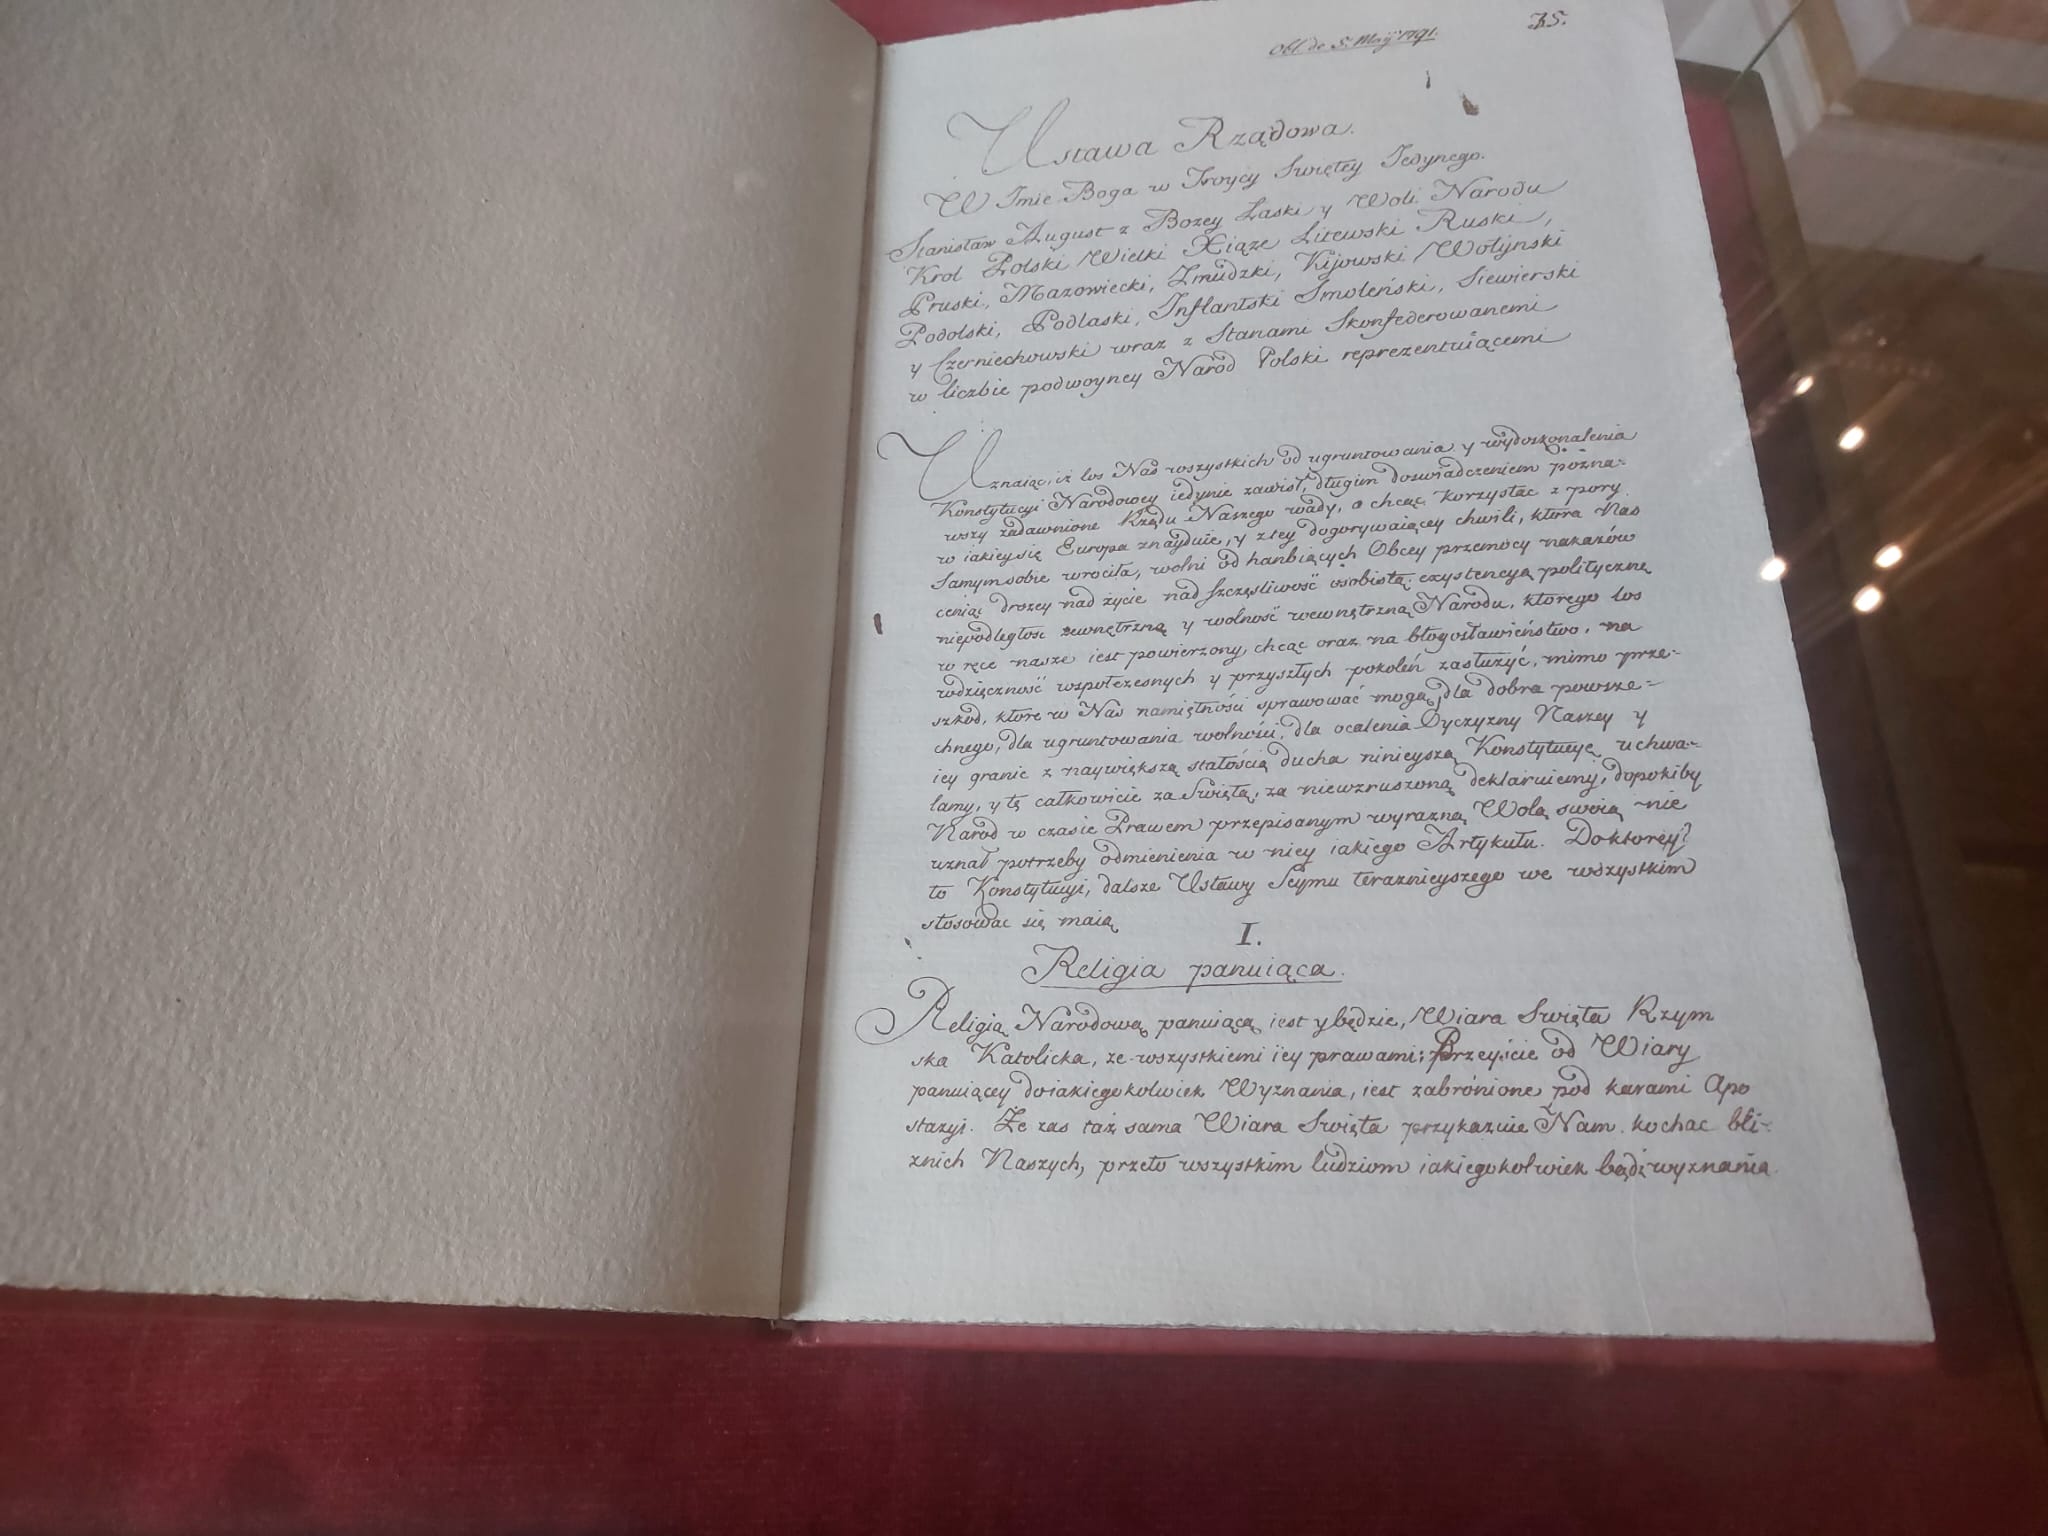 Obl. de 5. Maij 1791.
35.
Ustawa Rządowa.
W Imie Boga w Troycy Swiętey Iedynego.
Stanisław August z Bozey Łaski y Woli Narodu
Krol Polski Wielki Xiąze Litewski Ruski,
Pruski, Mazowiecki, Zmudzki, Kijowski Wolÿnski
Podolski, Podlaski, Inflantski Smoleński, Siewierski
y Czerniechowski wraz z Stanami Skonfederowanemi
w liczbie podwoyney Naród Polski reprezentuiącemi
Uznaiąc, iż los Nas wszystkich od ugruntowania y wydoskonalenia
Konstytucyi Narodowey iedynie zawisł, długim doswiadczeniem pozna-
wszy zadawnione Rządu Naszego wady, a chcąc korzystac z pory
w iakiey się Europa znayduie, y z tey dogorywaiącey chwili, ktora Nas
samym sobie wrociła, wolni od hanbiących Obcey przemocy nakazów
ceniąc drozey nad życie nad szczęsliwość osobistą; exystencyą polityczną
niepodległosc zewnętrzną y wolność wewnętrzną Narodu, ktorego los
w ręce nasze iest powierzony, chcąc oraz na błogosławieństwo, na
wdzięczność wspołczesnych y przyszłych pokoleń zasłużyć, mimo prze-
szkod, ktore w Nas namiętności sprawować mogą, dla dobra powsze-
chnego, dla ugruntowania wolności, dla ocalenia Oyczyzny Naszey y
iey granic z naywiększą stałością ducha ninieyszą Konstytucyę uchwa-
lamy, y tę całkowicie za Swiętą, za niewzruszoną deklaruiemy, dopokiby
Narod w czasie Prawem przepisanym wyrazną Wolą swoią nie
uznał potrzeby odmienienia w niey iakiego Artykułu. Do ktorey
to Konstytucyi, dalsze Ustawy Seymu teraznieyszego we wszystkim
stosowac się maią
I.
Religia panuiąca.
Religią Narodową panuiącą iest y będzie, Wiara Swięta Rzym
ska Katolicka, ze wszystkiemi iey prawami; Przeyście od Wiary
panuiącey do iakiegokolwiek Wyznania, iest zabrónione pod karami Apo
stazyi. Ze zas taż sama Wiara Swięta przykazuie Nam kochac bli-
znich Naszych, przeto wszystkim ludziom iakiegokolwiek bądź wyznania